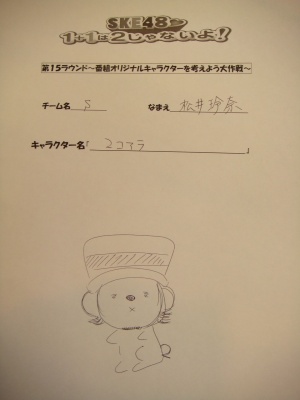 SKE48の
1+1は2じゃないよ！
第15ラウンド～番組オリジナルキャラクターを考えよう大作戦～
チーム名 S なまえ 松井玲奈
キャラクター名「 2コアラ 」